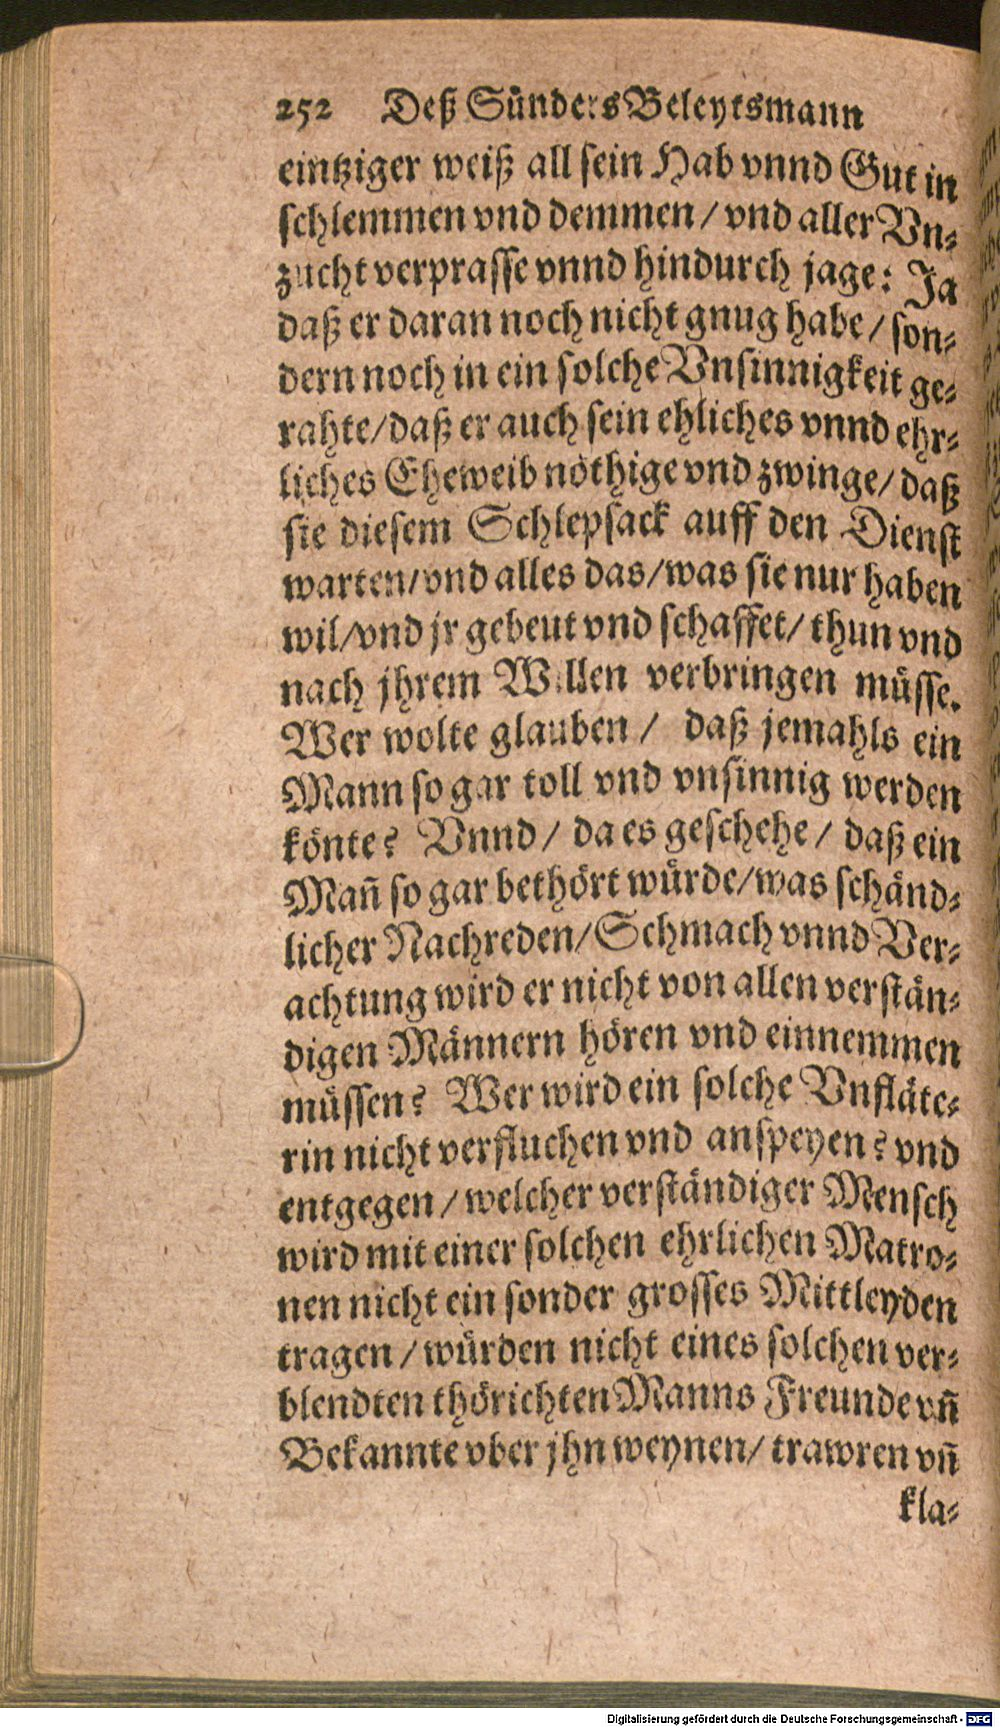 252 Deß Sünders Beleytsmann
eintziger weiß all sein Hab vnnd Gut in
schlemmen vnd demmen / vnd aller Vn-
zucht verprasse vnnd hindurch jage: Ja
daß er daran noch nicht gnug habe / son-
dern noch in ein solche Vnsinnigkeit ge-
rahte/daß er auch sein ehliches vnnd ehr-
liches Eheweib nöthige vnd zwinge/daß
sie diesem Schlepsack auff den Dienst
warten/vnd alles das/was sie nur haben
wil/vnd jr gebeut vnd schaffet/thun vnd
nach jhrem Willen verbringen müsse.
Wer wolte glauben / daß jemahls ein
Mann so gar toll vnd vnsinnig werden
könte? Vnnd / da es geschehe / daß ein
Mañ so gar bethört würde/was schänd-
licher Nachreden/Schmach vnnd Ver-
achtung wird er nicht von allen verstän-
digen Männern hören vnd einnemmen
müssen? Wer wird ein solche Vnfläte-
rin nicht verfluchen vnd anspeyen? vnd
entgegen / welcher verständiger Mensch
wird mit einer solchen ehrlichen Matro-
nen nicht ein sonder grosses Mittleyden
tragen / würden nicht eines solchen ver-
blendten thörichten Manns Freunde vñ
Bekannte vber jhn weynen/trawren vñ
kla-
Digitalisierung gefördert durch die Deutsche Forschungsgemeinschaft - DFG